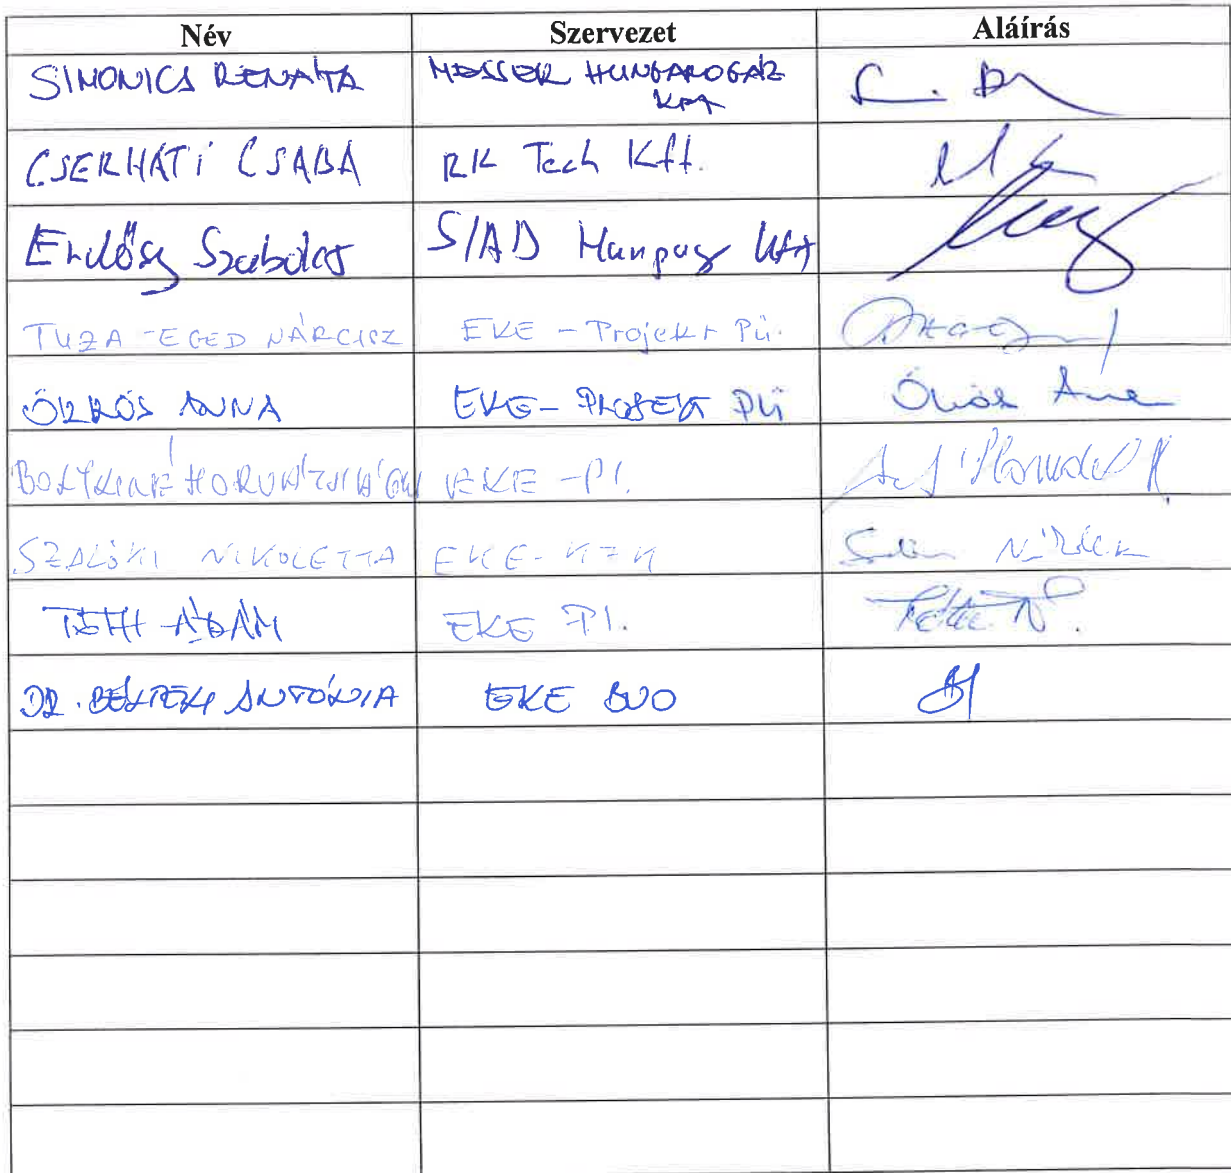 Név Szervezet Aláírás
SIMONICS RENÁTA MESSER HUNGAROGÁZ
KFT
CSERHÁTI CSABA RK Tech Kft.
Erdősy Szabolcs SIAD Hungary Kft
TUZA-EGED NÁRCISZ EKE - Projekt Pü.
ÖKRÖS ANNA EKE - PROJEKT PÜ Ökrös Anna
EKE - PI.
SZALÓKI NIKOLETTA EKE-
TÓTH ÁDÁM EKE PI.
DR. ANTÓNIA EKE